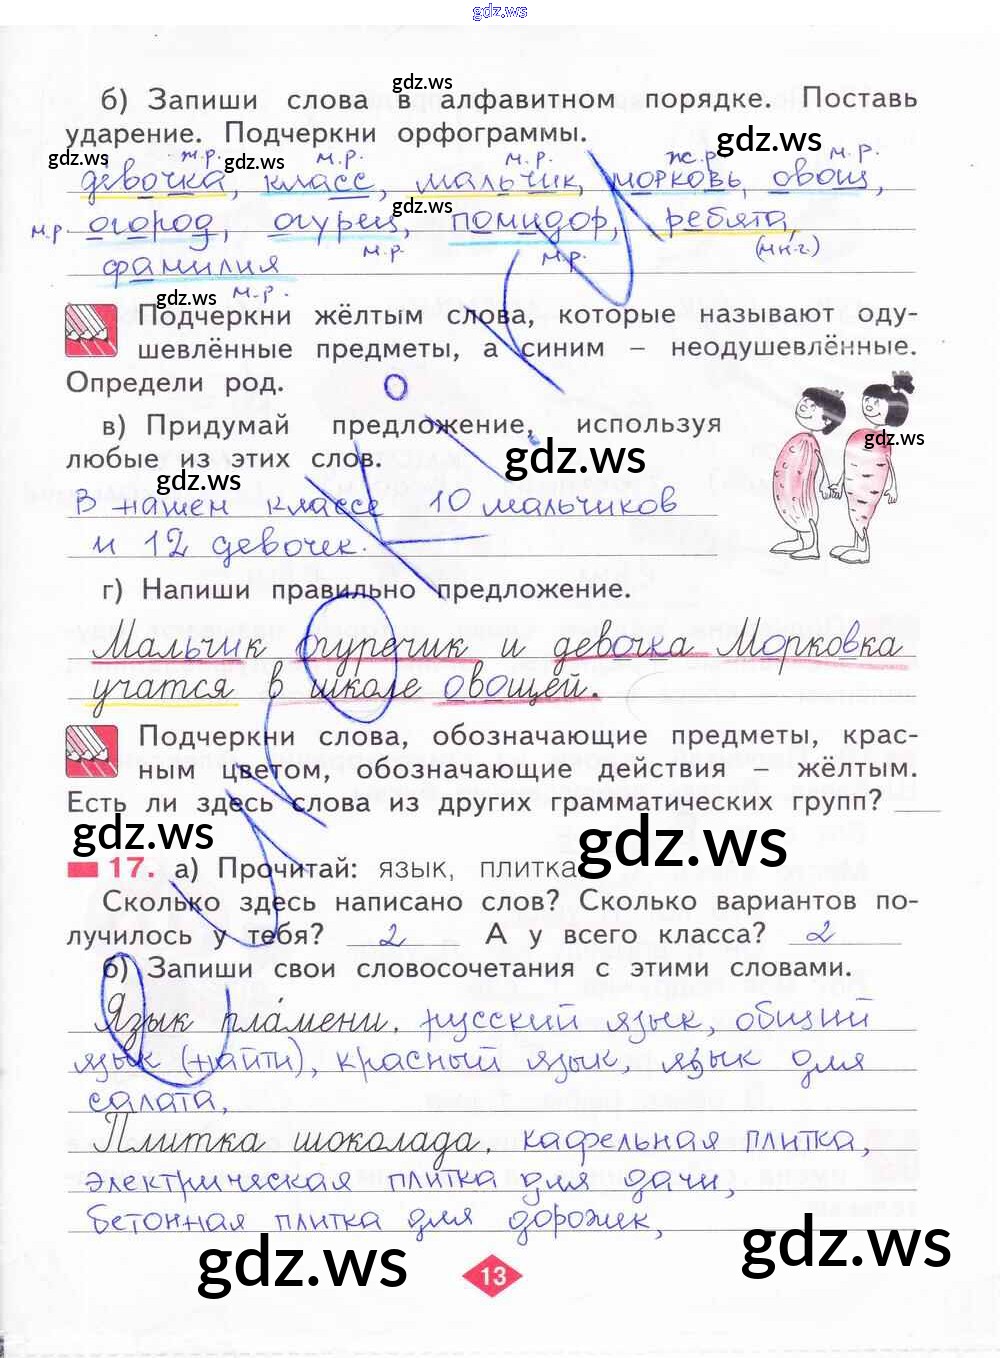 gdz.ws
б) Запиши слова в алфавитном порядке. Поставь
gdz.ws
ударение. Подчеркни орфограммы.
gdz.ws gdz.ws gdz.ws
ж.р. м.р. м.р. ж.р. м.р.
девочка, класс, мальчик, морковь, овощ,
gdz.ws
м.р. огород, огурец, помидор, ребята,
м.р. м.р. (мн.г.)
фамилия
м.р.
gdz.ws
Подчеркни жёлтым слова, которые называют оду-
шевлённые предметы, а синим – неодушевлённые.
Определи род.
в) Придумай предложение, используя
gdz.ws
любые из этих слов.
gdz.ws gdz.ws
В нашем классе 10 мальчиков
и 12 девочек.
г) Напиши правильно предложение.
Мальчик огуречик и девочка Морковка
учатся в школе овощей.
Подчеркни слова, обозначающие предметы, крас-
ным цветом, обозначающие действия – жёлтым.
Есть ли здесь слова из других грамматических групп?
gdz.ws gdz.ws
17. а) Прочитай: язык, плитка
Сколько здесь написано слов? Сколько вариантов по-
лучилось у тебя? 2 А у всего класса? 2
б) Запиши свои словосочетания с этими словами.
Язык пла́мени, русский язык, общий
язык (найти), красный язык, язык для
салата,
Плитка шоколада, кафельная плитка,
электрическая плитка для дачи,
бетонная плитка для дорожек,
gdz.ws gdz.ws
13